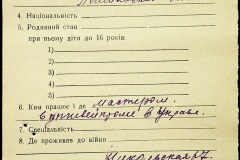 4. Національність
5. Родинний стан
при ньому діти до 16 років:
1)
2)
3)
4)
5)
6. Ким працює і де мастером.
в Укрыве.
7. Спеціяльність
8. Де проживав до війни
Никольская 67